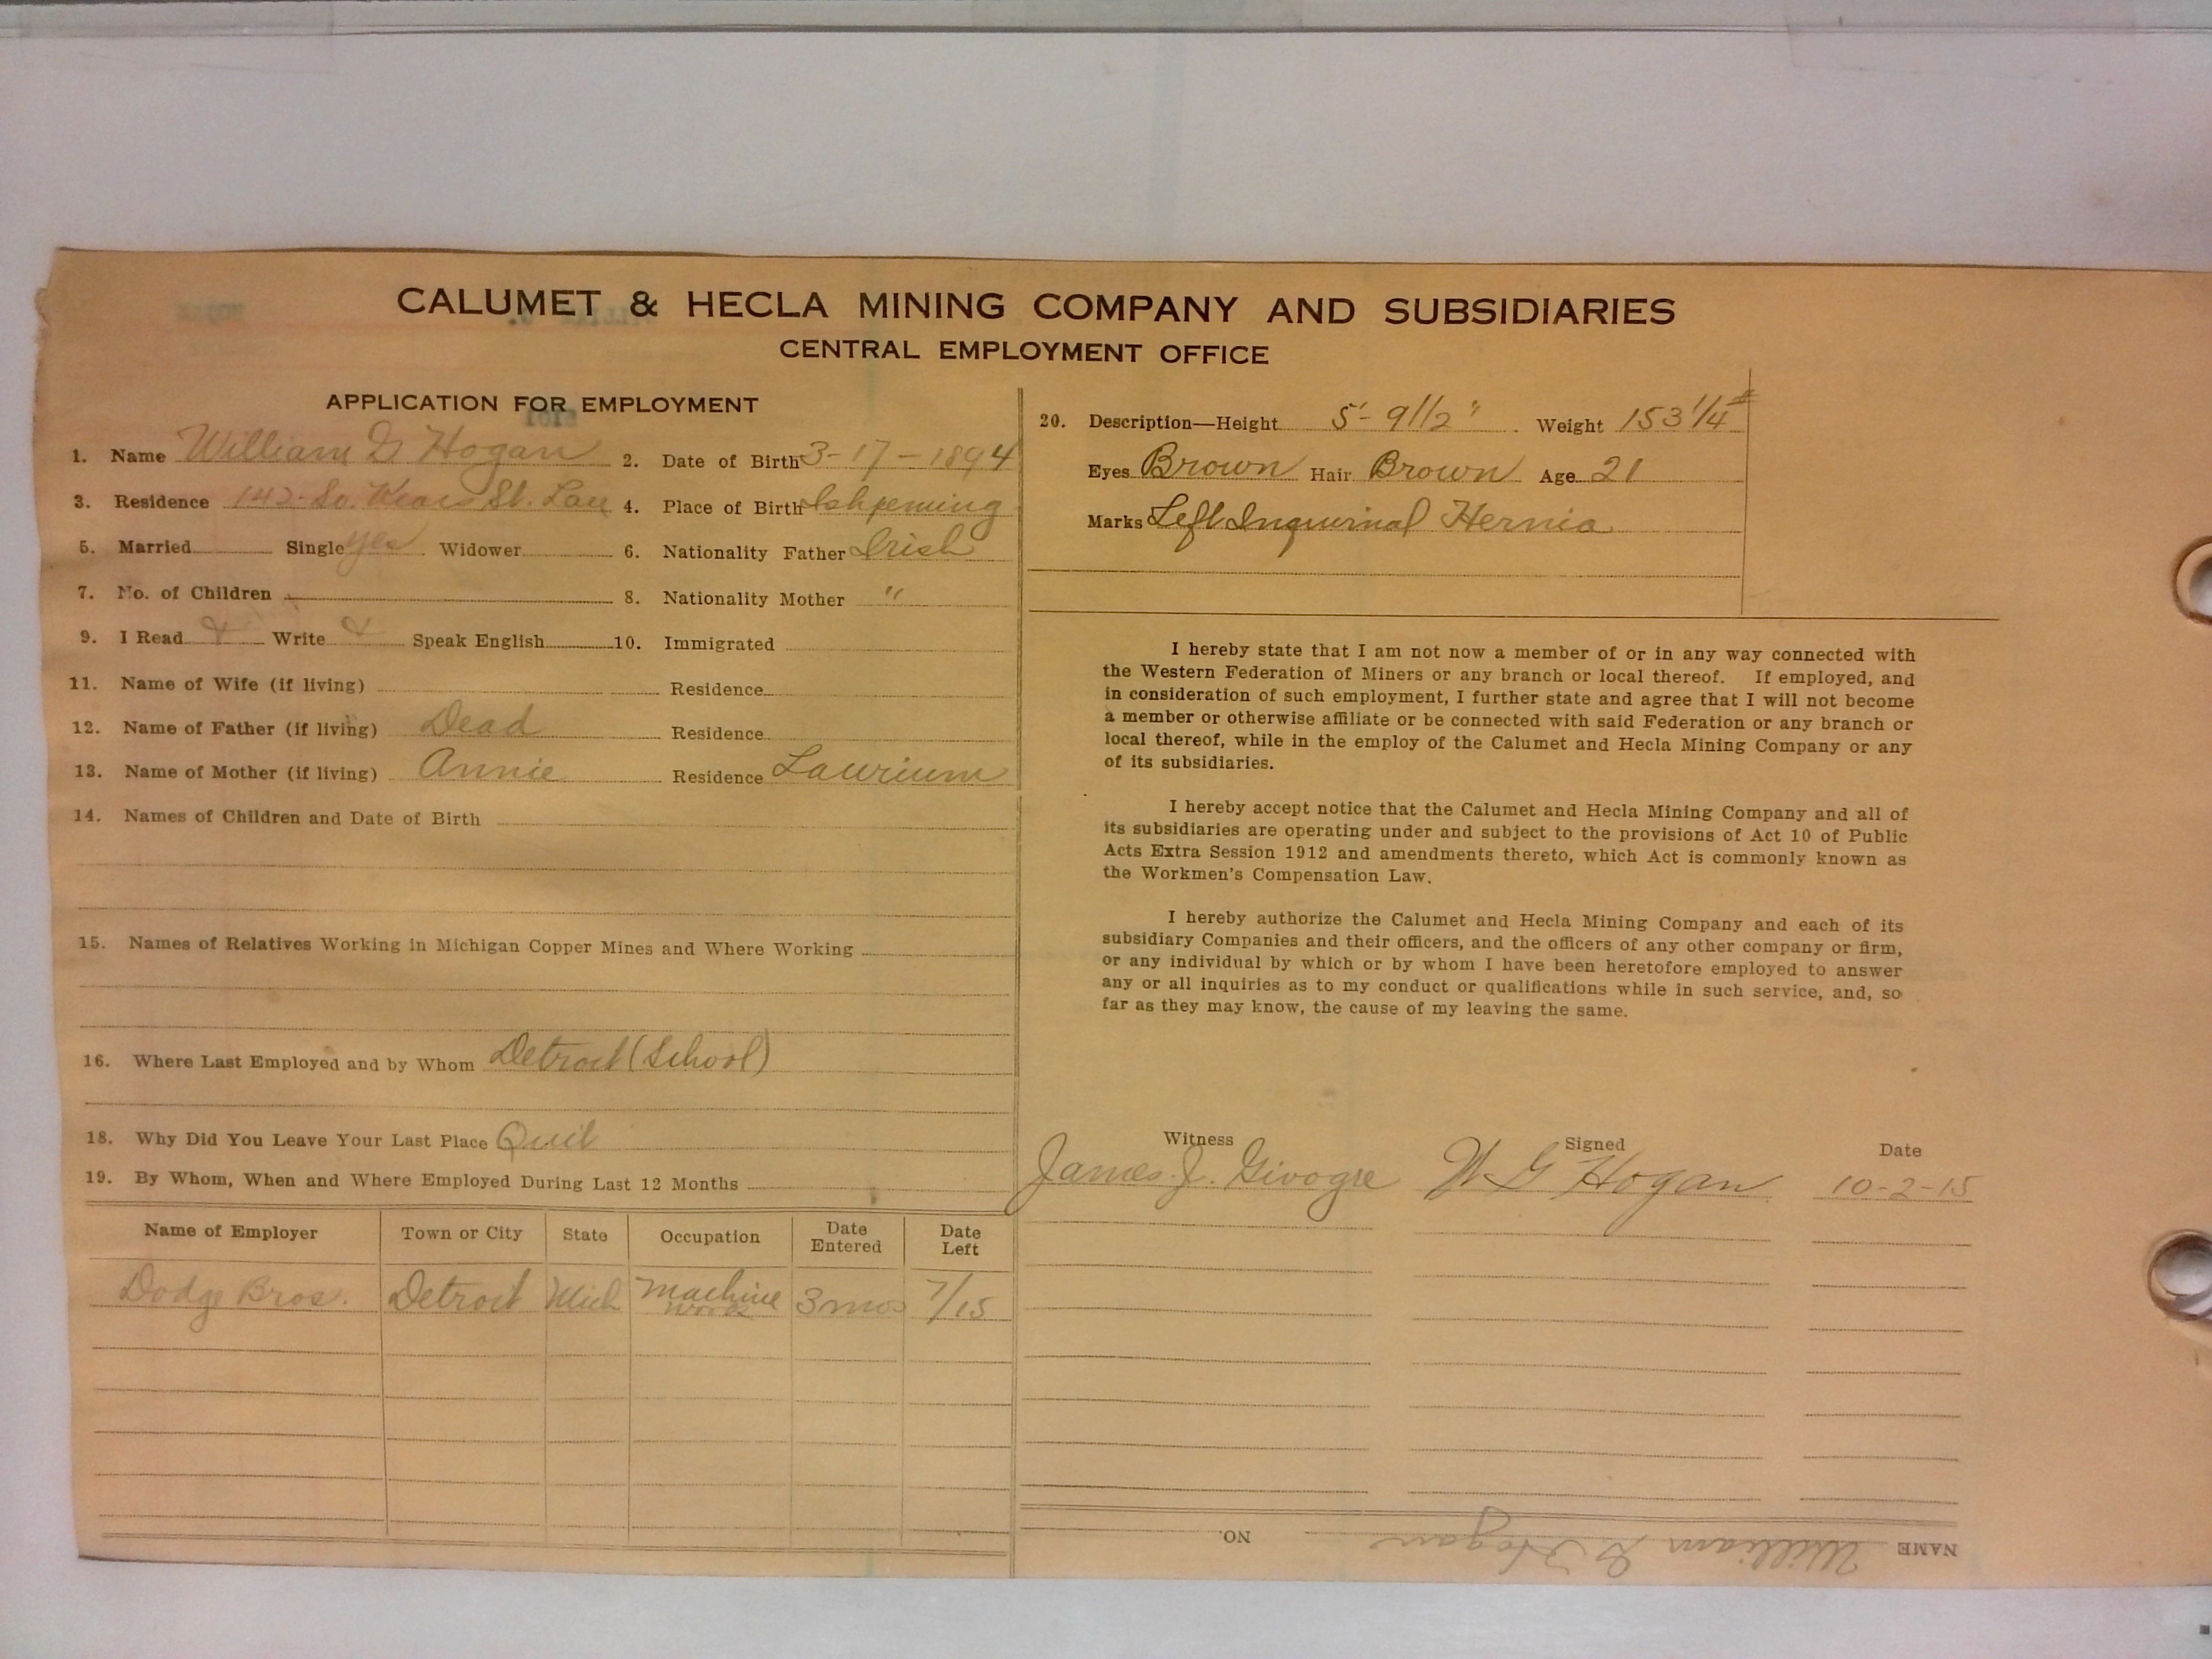 CALUMET & HECLA MINING COMPANY AND SUBSIDIARIES
CENTRAL EMPLOYMENT OFFICE
APPLICATION FOR EMPLOYMENT
1. Name William G Hogan 2. Date of Birth 3-17-1894
3. Residence 142 So. Kears St. Lau 4. Place of Birth Ishpeming
5. Married Single yes Widower 6. Nationality Father Irish
7. No. of Children 8. Nationality Mother "
9. I Read Write Speak English 10. Immigrated
11. Name of Wife (if living) Residence
12. Name of Father (if living) Dead Residence
13. Name of Mother (if living) Annie Residence Laurium
14. Names of Children and Date of Birth
15. Names of Relatives Working in Michigan Copper Mines and Where Working
16. Where Last Employed and by Whom Detroit (School)
18. Why Did You Leave Your Last Place Quit
19. By Whom, When and Where Employed During Last 12 Months
Name of Employer Town or City State Occupation Date Entered Date Left
Dodge Bros. Detroit Mich Machine work 3 mos 7/15
20. Description—Height 5'-9 1/2" Weight 153 1/4 #
Eyes Brown Hair Brown Age 21
Marks Left Inguirnal Hernia
I hereby state that I am not now a member of or in any way connected with
the Western Federation of Miners or any branch or local thereof. If employed, and
in consideration of such employment, I further state and agree that I will not become
a member or otherwise affiliate or be connected with said Federation or any branch or
local thereof, while in the employ of the Calumet and Hecla Mining Company or any
of its subsidiaries.
I hereby accept notice that the Calumet and Hecla Mining Company and all of
its subsidiaries are operating under and subject to the provisions of Act 10 of Public
Acts Extra Session 1912 and amendments thereto, which Act is commonly known as
the Workmen's Compensation Law.
I hereby authorize the Calumet and Hecla Mining Company and each of its
subsidiary Companies and their officers, and the officers of any other company or firm,
or any individual by which or by whom I have been heretofore employed to answer
any or all inquiries as to my conduct or qualifications while in such service, and, so
far as they may know, the cause of my leaving the same.
Witness Signed Date
James J. Givogre W G Hogan 10-2-15
NAME William G Hogan NO.